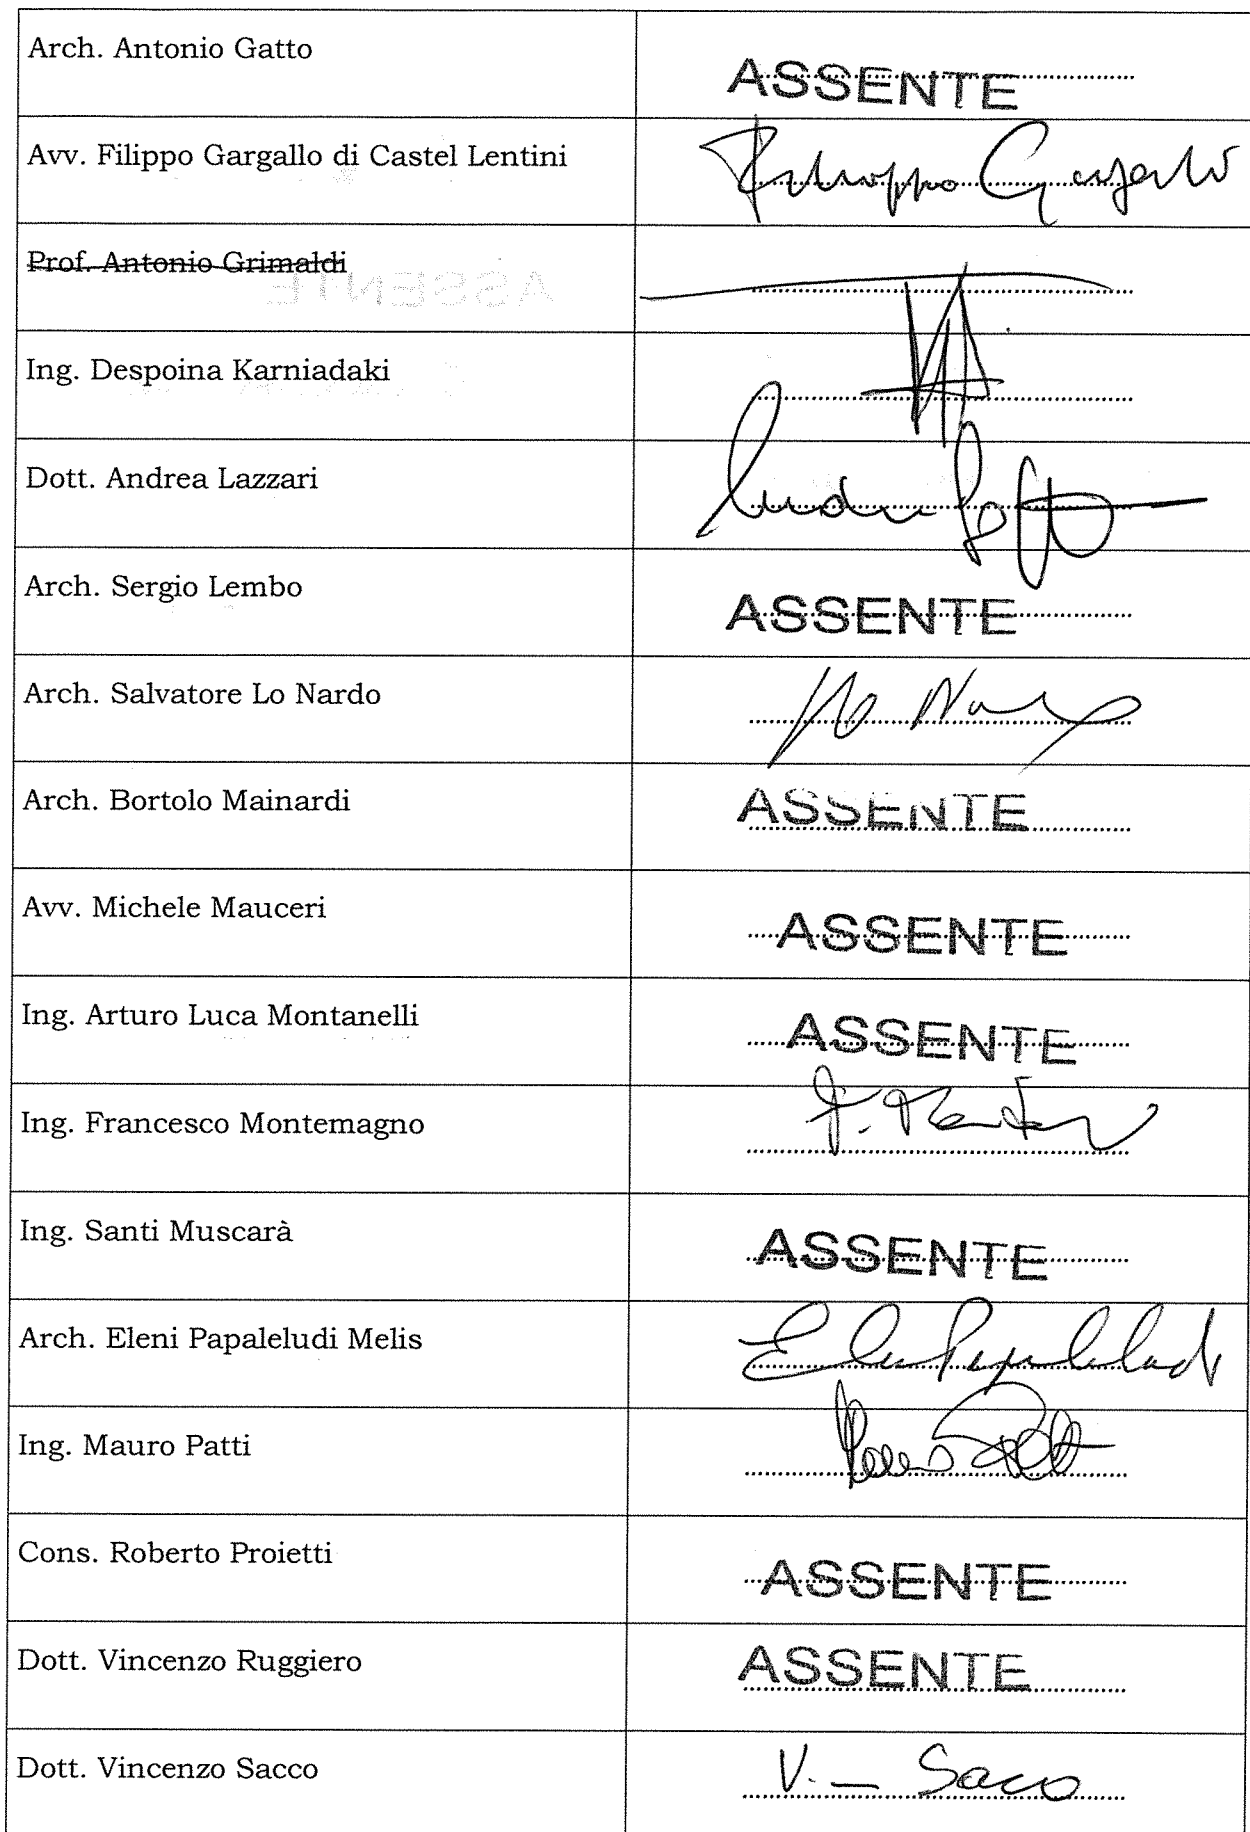 Arch. Antonio Gatto
ASSENTE
Avv. Filippo Gargallo di Castel Lentini
Filippo Gargallo
Prof. Antonio Grimaldi
ASSENTE
Ing. Despoina Karniadaki
Dott. Andrea Lazzari
Arch. Sergio Lembo
ASSENTE
Arch. Salvatore Lo Nardo
Lo Nardo
Arch. Bortolo Mainardi
ASSENTE
Avv. Michele Mauceri
ASSENTE
Ing. Arturo Luca Montanelli
ASSENTE
Ing. Francesco Montemagno
Ing. Santi Muscarà
ASSENTE
Arch. Eleni Papaleludi Melis
Ing. Mauro Patti
Cons. Roberto Proietti
ASSENTE
Dott. Vincenzo Ruggiero
ASSENTE
Dott. Vincenzo Sacco
V. Sacco